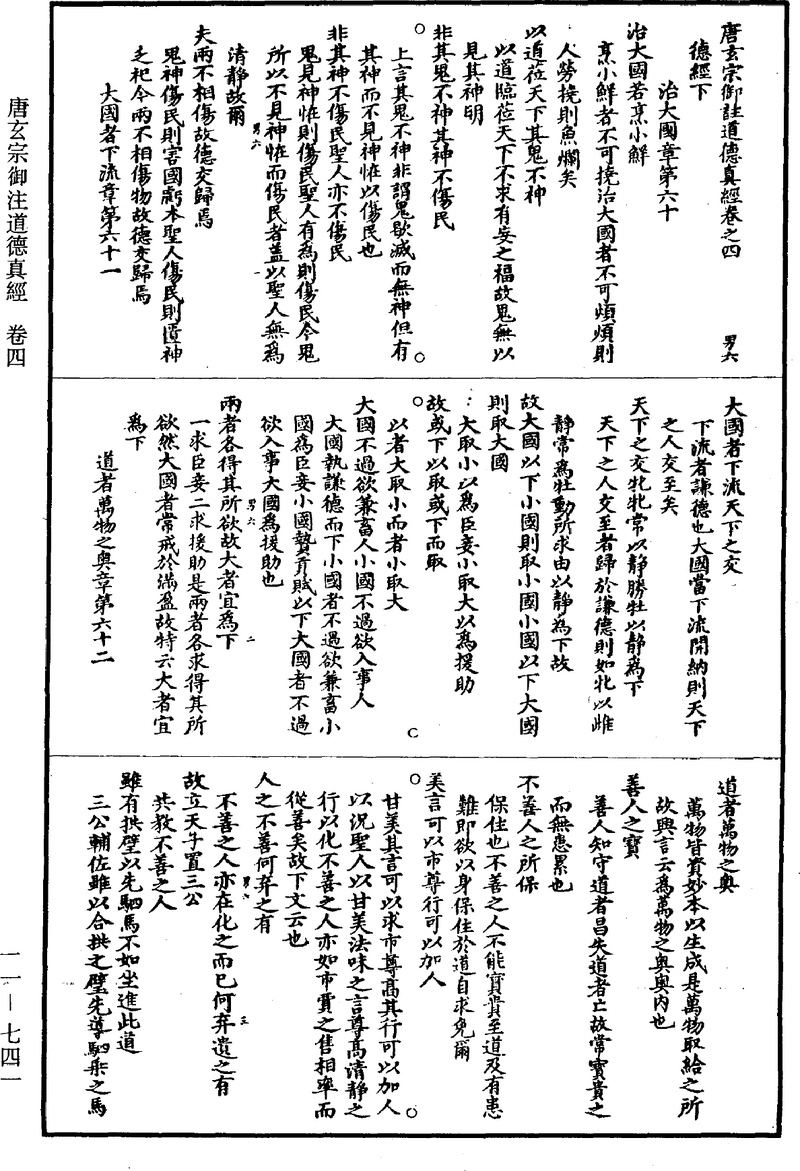 唐玄宗御注道德真經　卷四
唐玄宗御註道德真經卷之四　男六
德經下
治大國章第六十
治大國若烹小鮮
烹小鮮者不可撓治大國者不可煩煩則
人勞撓則魚爛矣
以道莅天下其鬼不神
以道臨莅天下不求有妄之福故鬼無以
見其神明
非其鬼不神其神不傷民
上言其鬼不神非謂鬼歇滅而無神但有
其神而不見神恠以傷民也
非其神不傷民聖人亦不傷民
鬼見神恠則傷民聖人有為則傷民今鬼
所以不見神恠而傷民者盖以聖人無為
清靜故爾
男六　一
夫兩不相傷故德交歸焉
鬼神傷民則害國虧本聖人傷民則匱神
乏祀今兩不相傷物故德交歸焉
大國者下流章第六十一
大國者下流天下之交
下流者謙德也大國當下流開納則天下
之人交至矣
天下之交牝牝常以靜勝牡以靜為下
天下之人交至者歸於謙德則如牝以雌
靜常為牡動所求由以靜為下故
故大國以下小國則取小國小國以下大國
則取大國
大取小以為臣妾小取大以為援助
故或下以取或下而取
以者大取小而者小取大
大國不過欲兼畜人小國不過欲入事人
大國執謙德而下小國者不過欲兼畜小
國為臣妾小國贄貢賦以下大國者不過
欲入事大國為援助也
男六　二
兩者各得其所欲故大者宜為下
一求臣妾二求援助是兩者各求得其所
欲然大國者常戒於滿盈故特云大者宜
為下
道者萬物之奧章第六十二
道者萬物之奧
萬物皆資妙本以生成是萬物取給之所
故興言云為萬物之奧奧內也
善人之寶
善人知守道者昌失道者亡故常寶貴之
而無患累也
不善人之所保
保住也不善之人不能寶貴至道及有患
難即欲以身保住於道自求免爾
美言可以市尊行可以加人
甘美其言可以求市尊高其行可以加人
以況聖人以甘美法味之言尊高清靜之
行以化不善之人亦如市賈之售相率而
從善矣故下文云也
人之不善何弃之有
男六　三
不善之人亦在化之而已何弃遺之有
故立天子置三公
共教不善之人
雖有拱璧以先駟馬不如坐進此道
三公輔佐雖以合拱之璧先導駟乘之馬
一一—七四一